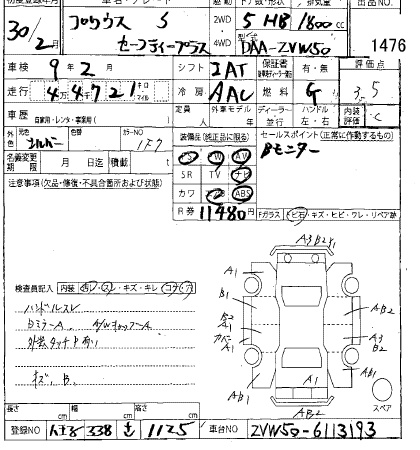 初度登録年月 車名・グレード 駆動 ドア数・形状 排気量 出品NO
30/2月 プリウス S 2WD 5 HB 1800cc
セーフティープラス 4WD 型式 DAA-ZVW50 1476
車検 9年2月 シフト IAT 保証書 有・無 評価点
走行 4万4千721 キロ マイル 冷房 AAC 燃料 G 3.5
車歴 自家用・レンタ・事業用 定員 人 外車モデル 年 ディーラー 並行 ハンドル 左・右 内装評価 C
外色 元色 シルバー 色替 カラーNO 1F7 装備品(純正品に限る) セールスポイント(正常に作動するもの)
名義変更期限 月 日迄 積載 t PS PW AV Bモニター
注意事項(欠品・修復・不具合箇所および状態) SR TV ナビ
カワ エアB ABS
R券 11480円 Fガラス 飛石・キズ・ヒビ・ワレ・リペア跡
検査員記入 内装 ヨゴレ・スレ・キズ・キレ・コゲ穴
ハンドルスレ
DミラーA
外装タッチ
キズ、B.
A1 B1 A1 A1 AB1 AB2 A3 B2 AB1 A1 AB2
スペア
長さ cm 幅 cm 高さ cm
登録NO 338 1125 車台NO ZVW50-6113193